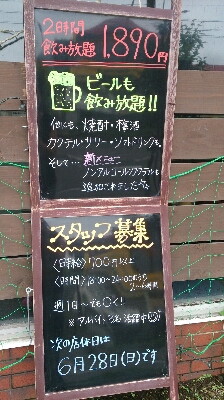 2時間
飲み放題 1,890円
ビールも
飲み放題!!
他にも、焼酎・梅酒
カクテル・サワー・ソフトドリンク。
そして…
ノンアルコールカクテルも
スタッフ募集
(時給) 700円以上
週1日〜
次の店休日は
6月28日(日)です